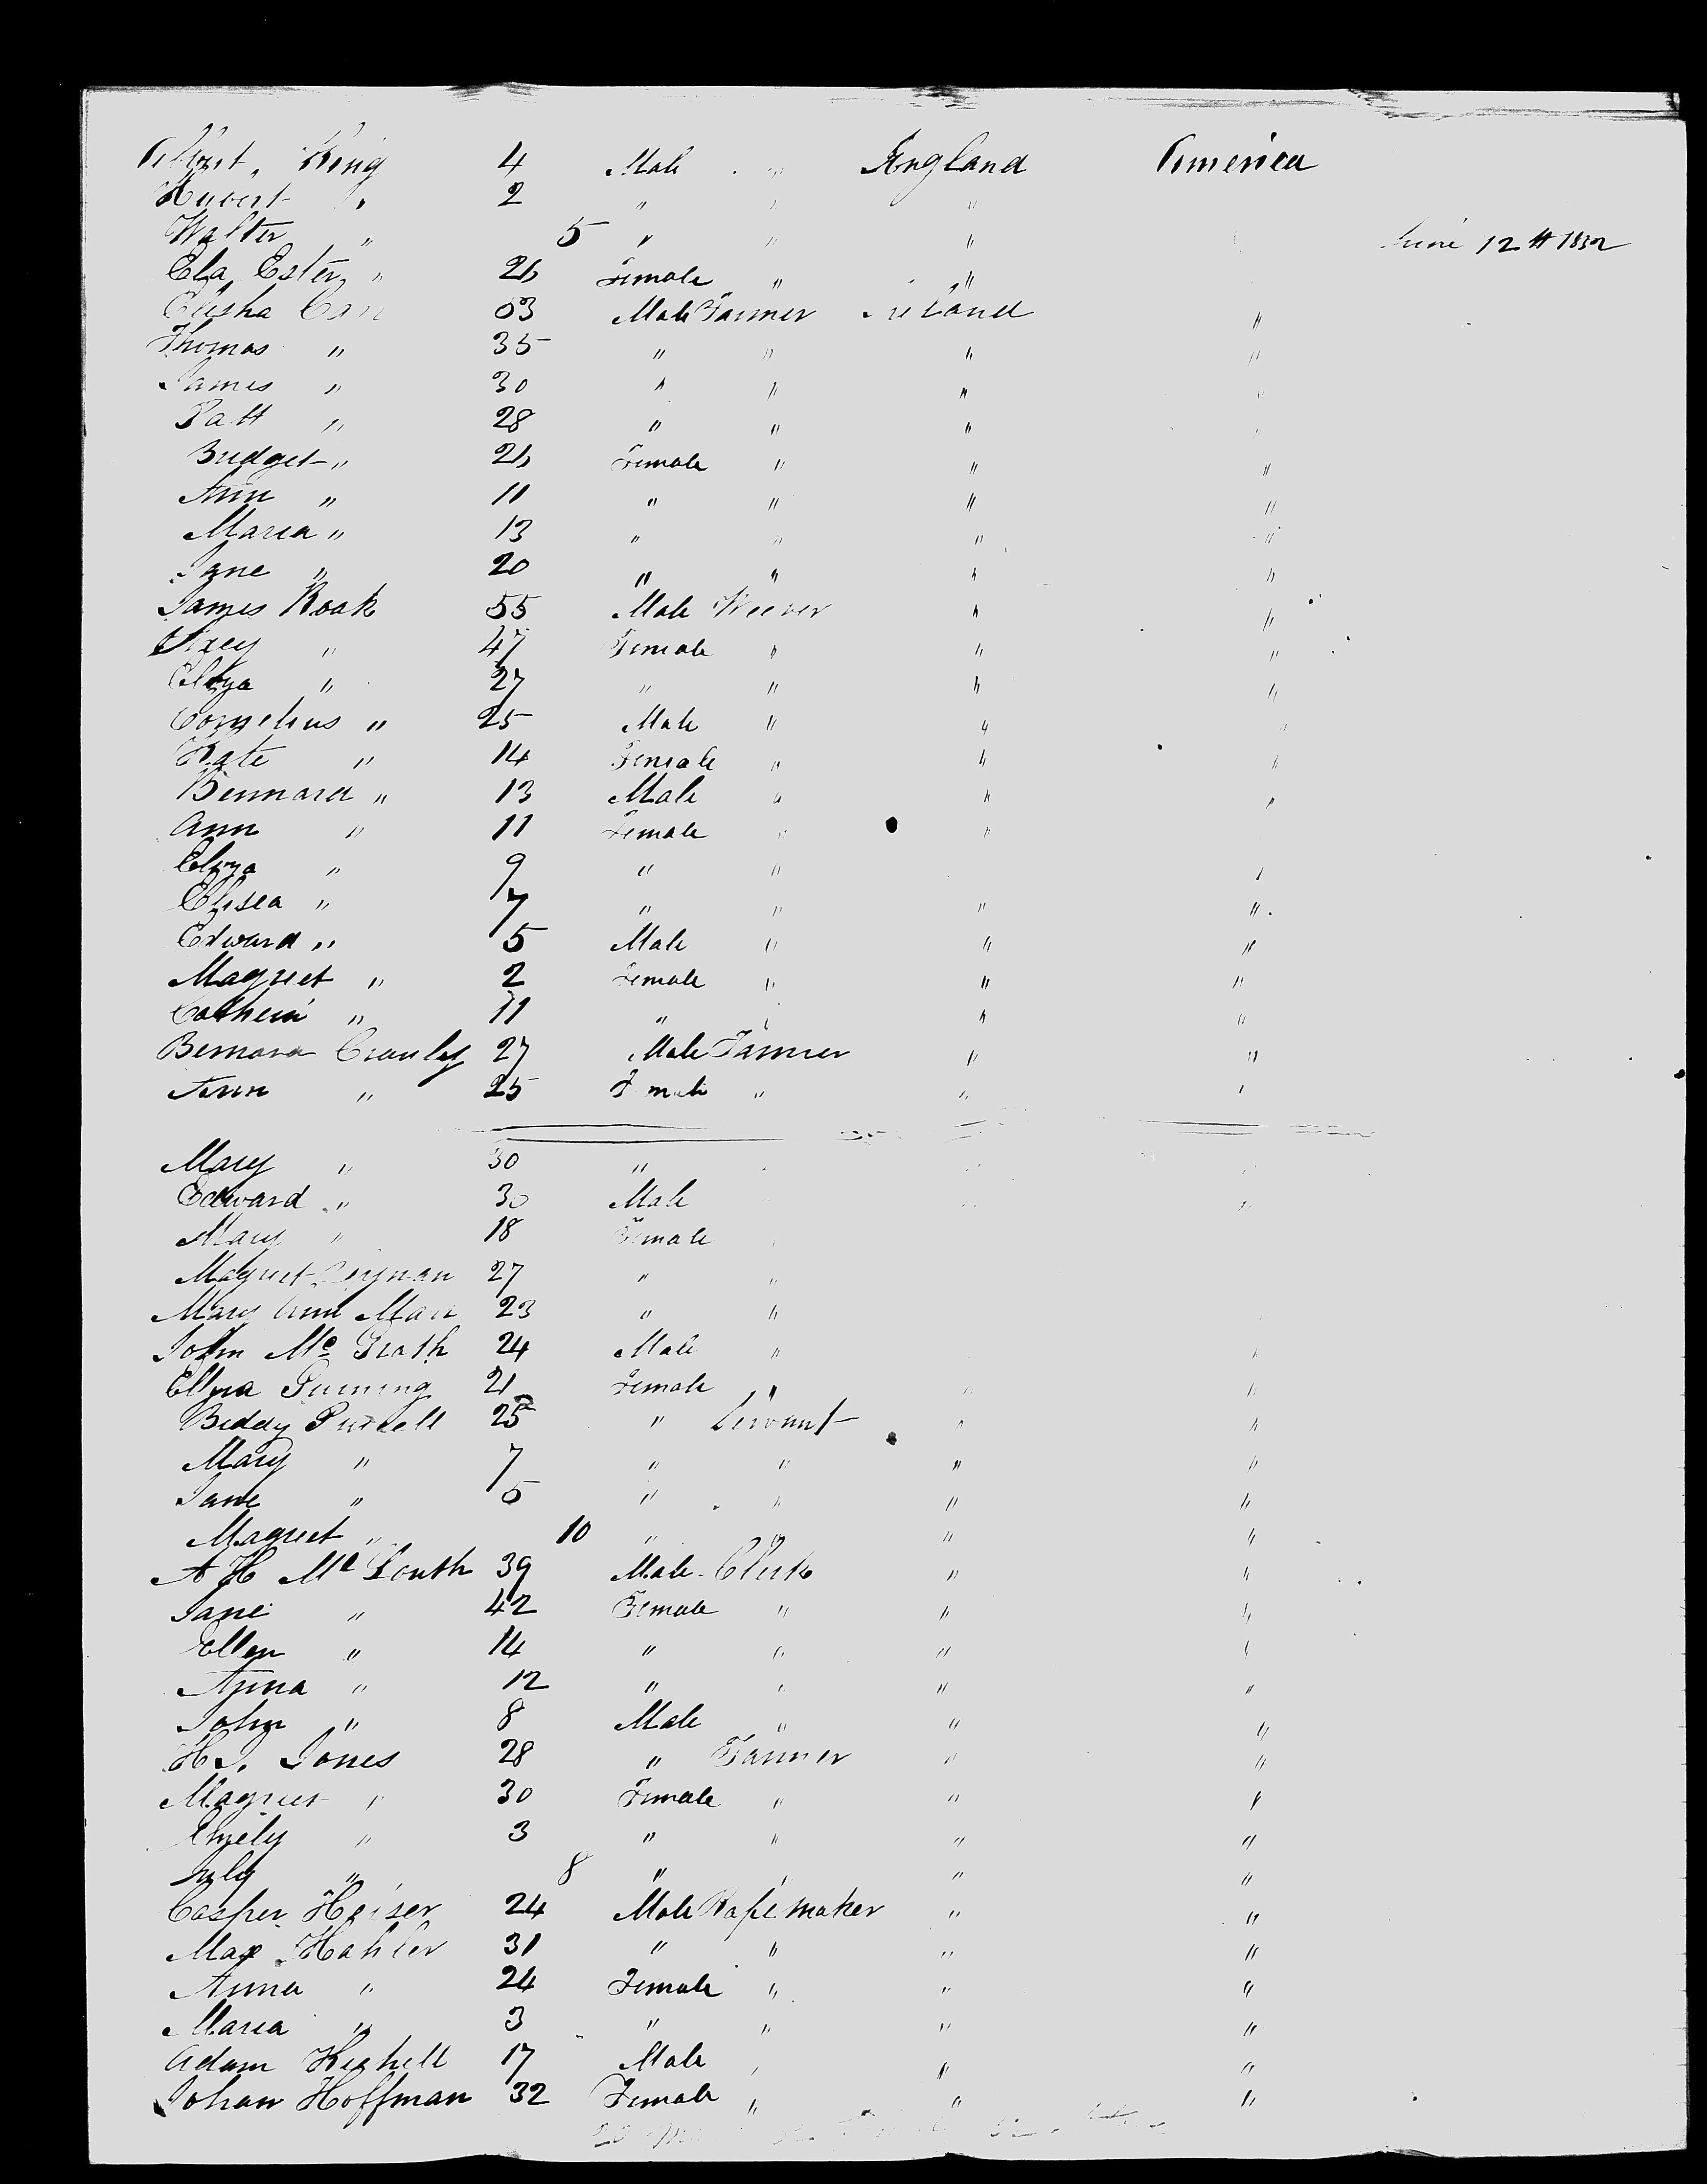 Albert King 4 Male " England America
Hubert " 2 " " "
Walter " 5 " " " June 12th 1852
Ela Ester " 26 Female " "
Elisha Carr 53 Male Farmer Ireland "
Thomas " 35 " " " "
James " 30 " " " "
Patt " 28 " " " "
Bridget " 26 Female " " "
Ann " 11 " " " "
Maria " 13 " " " "
Jane " 20 " " " "
James Roak 55 Male Weever " "
" 47 Female " " "
Eliza " 27 " " " "
Cornelius " 25 Male " " "
Kate " 14 Female " " "
Bennard " 13 Male " " "
Ann " 11 Female " "
Eliza " 9 " " "
Elisea " 7 " " " "
Edward " 5 Male " " "
Magret " 2 Female " " "
Cathein " 11 " " " "
Bernard Crauley 27 Male Farmer " "
Ann " 25 Female " " "
Mary " 30 " "
Edward " 30 Male " "
Mary " 18 Female
Magret 27 " "
Mary Ann Marr 23 " "
John Mc Grath 24 Male " "
Ellyna 21 Female " " "
Biddy Purcell 25 " Servant " "
Mary " 7 " " " "
Jane " 5 " " " "
Magret " 10 " " " "
A H Mc Louth 39 Male Clerk " "
Jane " 42 Female " " "
Ellen " 14 " " " "
Anna " 12 " " " "
John " 8 Male " " "
H J. Jones 28 " Farmer " "
Magret " 30 Female " " "
" 3 " " " "
" 8 " " " "
Casper Heiser 24 Male Rope maker " "
Max Hahler 31 " " " "
Anna " 24 Female " " "
Maria " 3 " " " "
Adam Kighell 17 Male " " "
Johan Hoffman 32 Female " " "